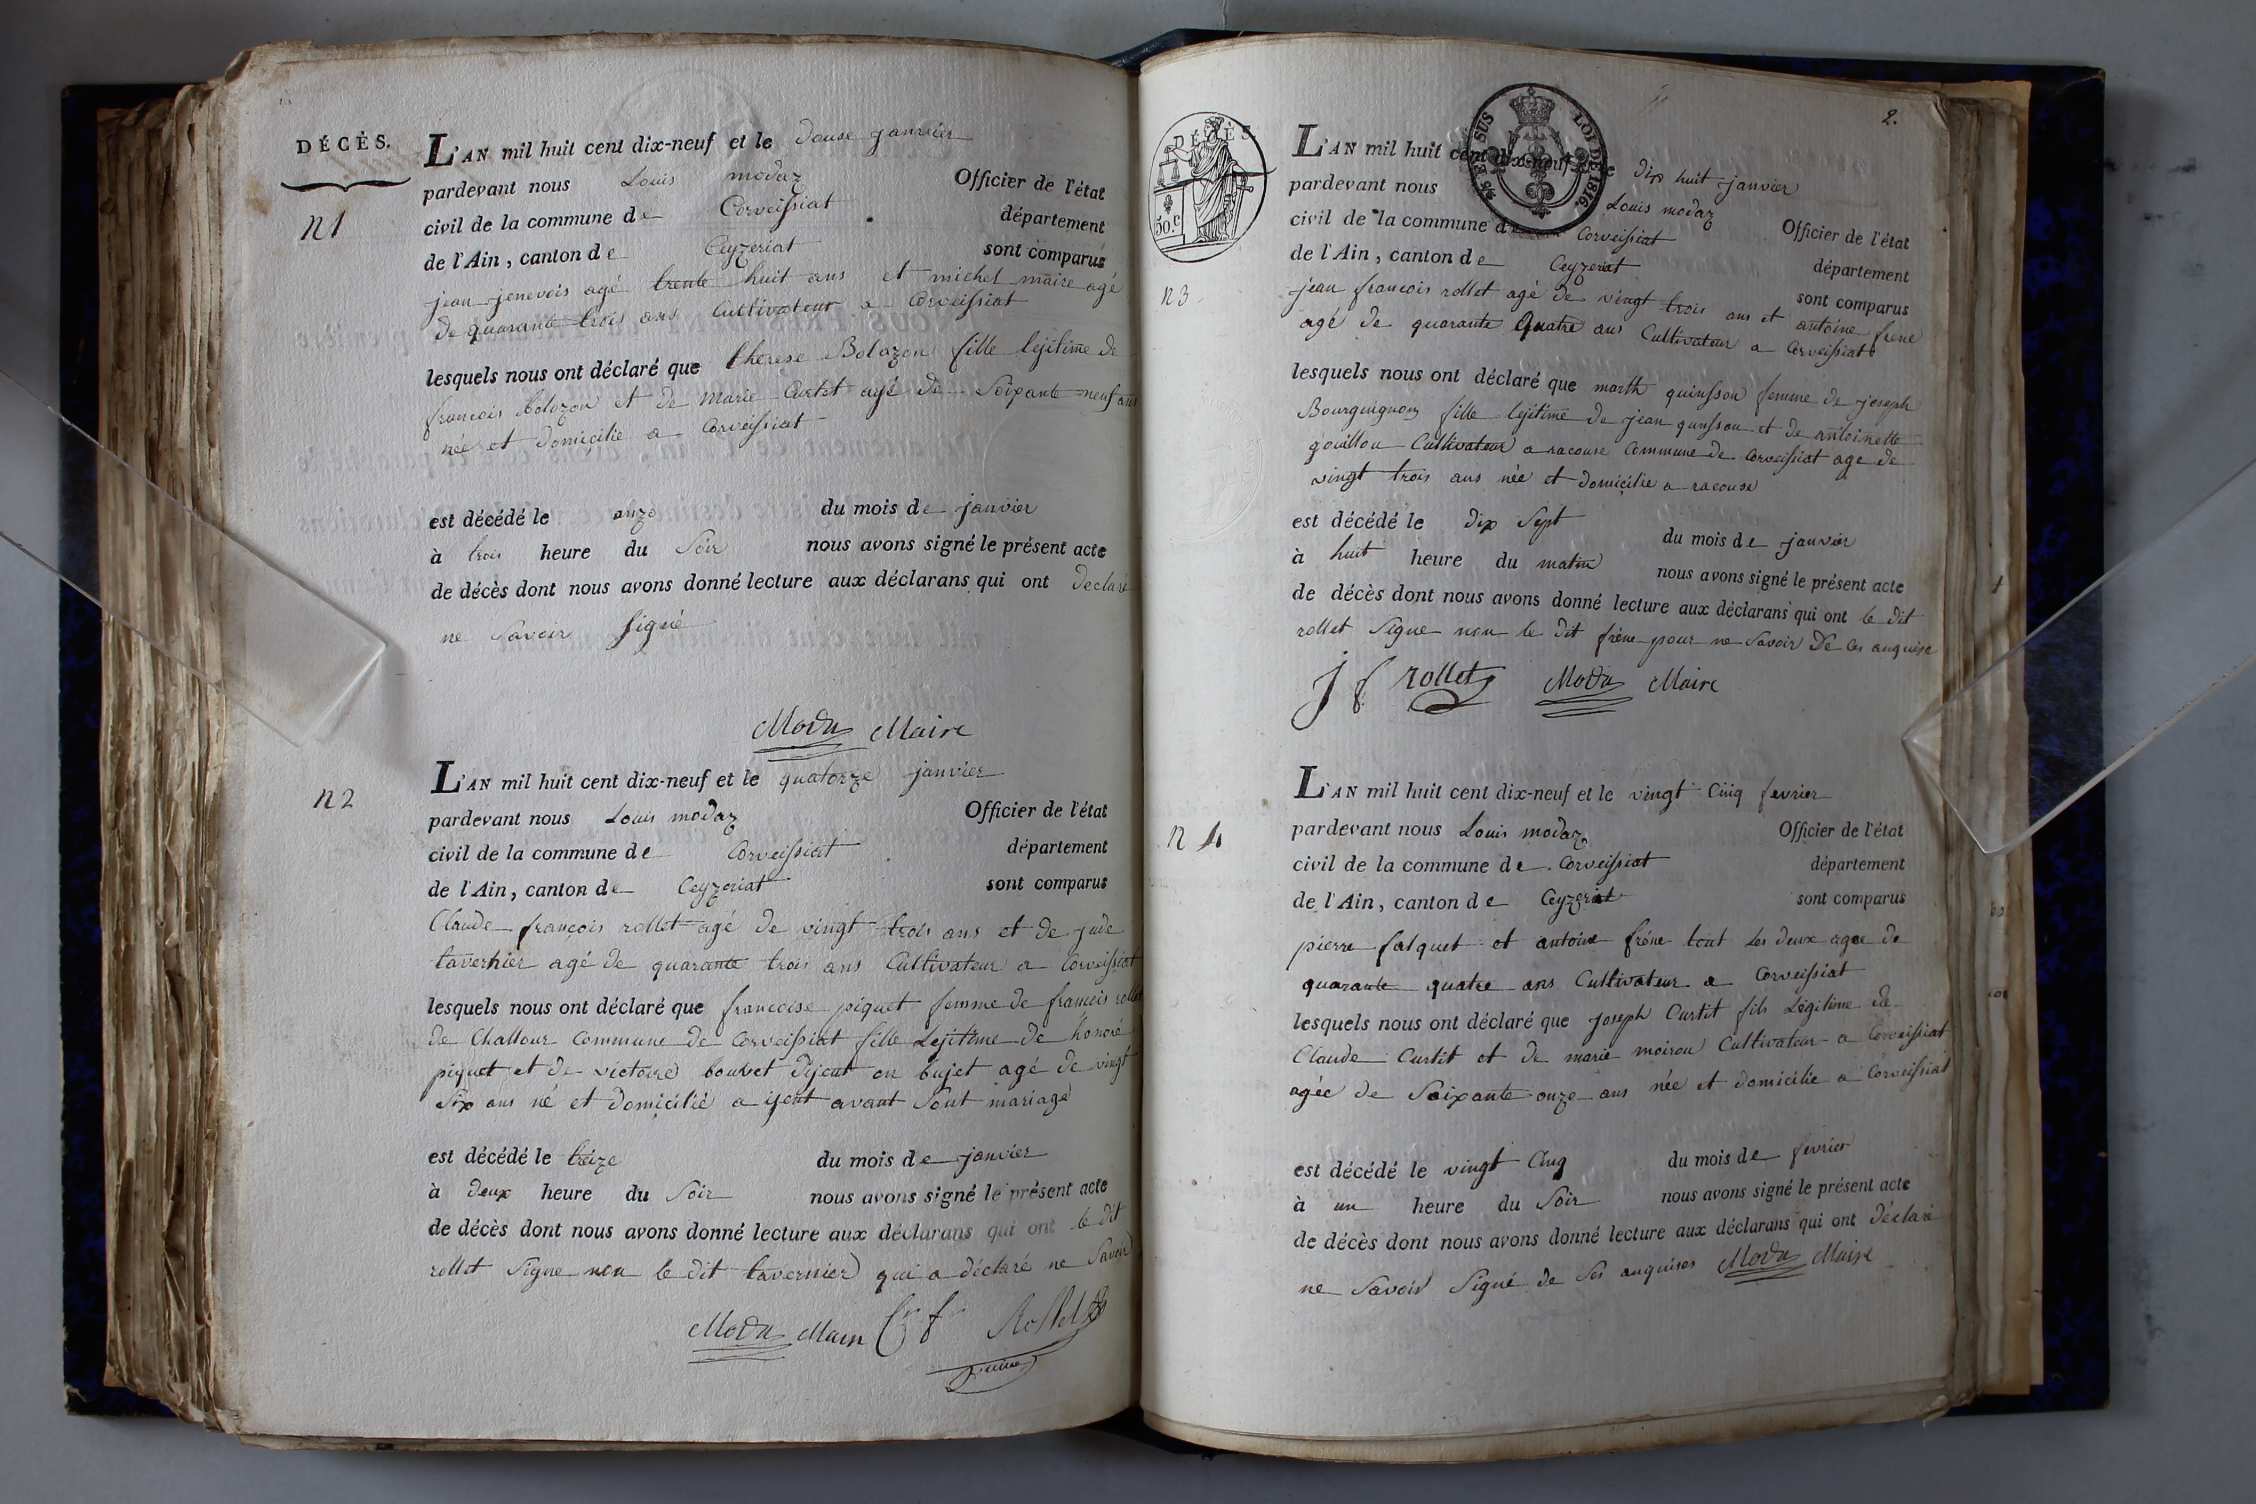 DÉCÈS.
N 1
L'AN mil huit cent dix-neuf et le douse janvier
pardevant nous Louis modaz Officier de l'état
civil de la commune de Corveissiat département
de l'Ain, canton de Ceyzeriat sont comparus
jean jenevois agé trente huit ans et michel maire agé
de quarante trois ans Cultivateur a Corveissiat
lesquels nous ont déclaré que therese Bolozon fille lejitime de
francois bolozon et de Marie Curtet agé de Soixante neuf ans
née et domicilié a Corveissiat
est décédé le onze du mois de janvier
à trois heure du Soir nous avons signé le présent acte
de décès dont nous avons donné lecture aux déclarans qui ont déclaré
ne Savoir signé
Modaz Maire
N 2
L'AN mil huit cent dix-neuf et le quatorze janvier
pardevant nous Louis modaz Officier de l'état
civil de la commune de Corveissiat département
de l'Ain, canton de Ceyzeriat sont comparus
Claude françois rollet agé de vingt trois ans et de jude
tavernier agé de quarante trois ans Cultivateur a Corveissiat
lesquels nous ont déclaré que francoise piquet femme de francois rollet
de Challour Commune de Corveissiat fille Lejitime de honoré
piquet et de victoire bouvet dijeut en bujet agé de vingt
Six ans né et domicilié a ijeut avant Sont mariage
est décédé le treize du mois de janvier
à deux heure du Soir nous avons signé le présent acte
de décès dont nous avons donné lecture aux déclarans qui ont le dit
rollet Signe non le dit tavernier qui a déclaré ne Savoir
Modaz Maire Cr fr Rollet
2.
DÉCÈS.
50.c
25 EN SUS
LOI DE 1816.
N 3
L'AN mil huit cent dix-neuf dix huit janvier
pardevant nous Louis modaz Officier de l'état
civil de la commune de Corveissiat département
de l'Ain, canton de Ceyzeriat sont comparus
jean francois rollet agé de vingt trois ans et antoine frene
agé de quarante quatre ans Cultivateur a Corveissiat
lesquels nous ont déclaré que marth quinsson femme de joseph
Bourguignon fille lejitime de jean quinsson et de antoinette
gouillon Cultivateur a racouse Commune de Corveissiat age de
vingt trois ans née et domicilie a racouse
est décédé le dix Sept du mois de janvier
à huit heure du matin nous avons signé le présent acte
de décès dont nous avons donné lecture aux déclarans qui ont le dit
rollet Signe non le dit frêne pour ne Savoir De ces anquise
J f rollet Modaz Maire
N 4
L'AN mil huit cent dix-neuf et le vingt Cinq fevrier
pardevant nous Louis modaz Officier de l'état
civil de la commune de Corveissiat département
de l'Ain, canton de Ceyzeriat sont comparus
pierre falquet et antoine frêne tout les deux agee de
quarante quatre ans Cultivateur a Corveissiat
lesquels nous ont déclaré que joseph Curtit fils Légitime de
Claude Curtit et de marie moirou Cultivateur a Corveissiat
agée de Soixante onze ans née et domicilie a Corveissiat
est décédé le vingt Cinq du mois de fevrier
à un heure du Soir nous avons signé le présent acte
de décès dont nous avons donné lecture aux déclarans qui ont déclaré
ne Savoir Signé de Ses anquises Modaz Maire